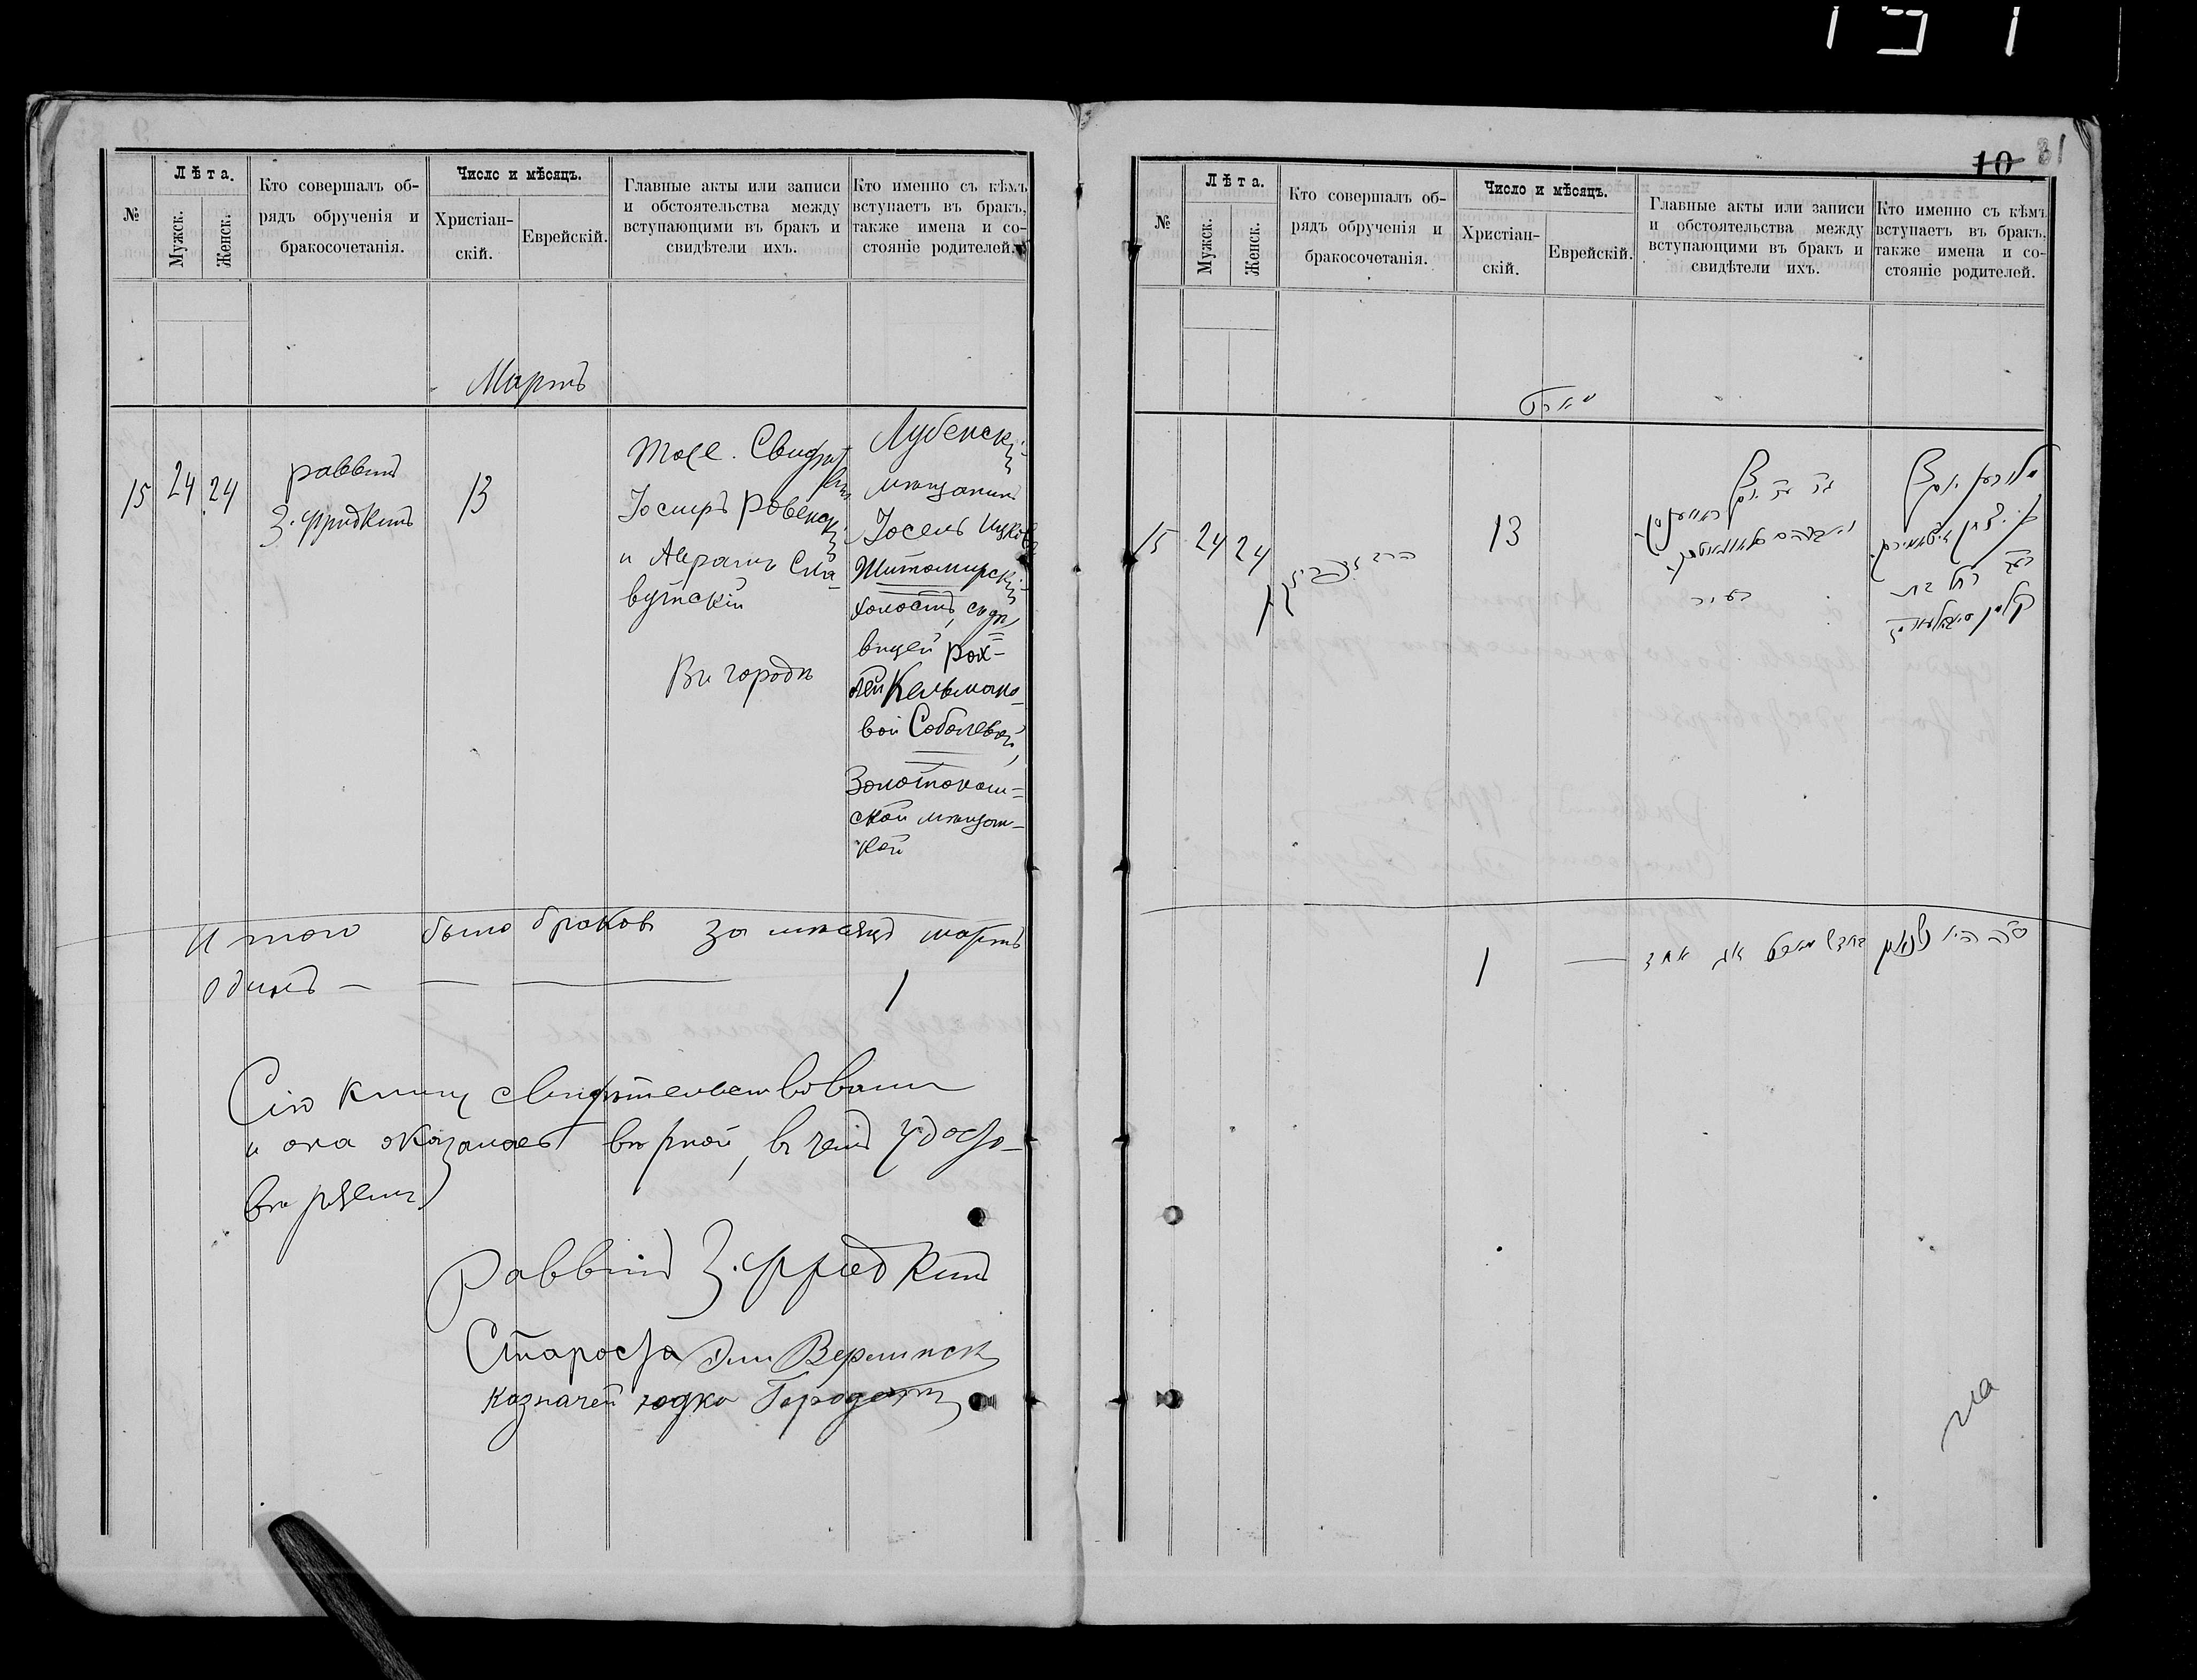 №
Лѣта.
Мужск.
Женск.
Кто совершалъ об-
рядъ обрученія и
бракосочетанія.
Число и мѣсяцъ.
Христіан-
скій.
Еврейскій.
Главные акты или записи
и обстоятельства между
вступающими въ бракъ и
свидѣтели ихъ.
Кто именно съ кѣмъ
вступаетъ въ бракъ,
также имена и со-
стояніе родителей.
Мартъ
15
24
24
раввинъ
З. Фридкинъ
13
Тоже. Свидѣт
Іосифъ Ровенскій
и Авраамъ Сла-
вутскій
Въ городѣ
Лубенскій
мѣщанинъ
Іосель Ицков
Житомирскій
холостъ, съ дѣ
вицей Рох-
лей Кельмано-
вой Соболевой,
Золотонош-
ской мѣщан-
кой
Итого было браковъ за мѣсяцъ мартъ
одинъ — — — 1
Сію книгу свидѣтельствовали
и она оказалась вѣрной, въ чемъ удосто-
вѣряемъ
Раввинъ З. Фридкинъ
Староста
Казначей Юдко
10 81
№
Лѣта.
Мужск.
Женск.
Кто совершалъ об-
рядъ обрученія и
бракосочетанія.
Число и мѣсяцъ.
Христіан-
скій.
Еврейскій.
Главные акты или записи
и обстоятельства между
вступающими въ бракъ и
свидѣтели ихъ.
Кто именно съ кѣмъ
вступаетъ въ бракъ,
также имена и со-
стояніе родителей.
מארט
15
24
24
הרב
13
ואברהם
בעיר
רחל בת
קלמן
1 — אחד